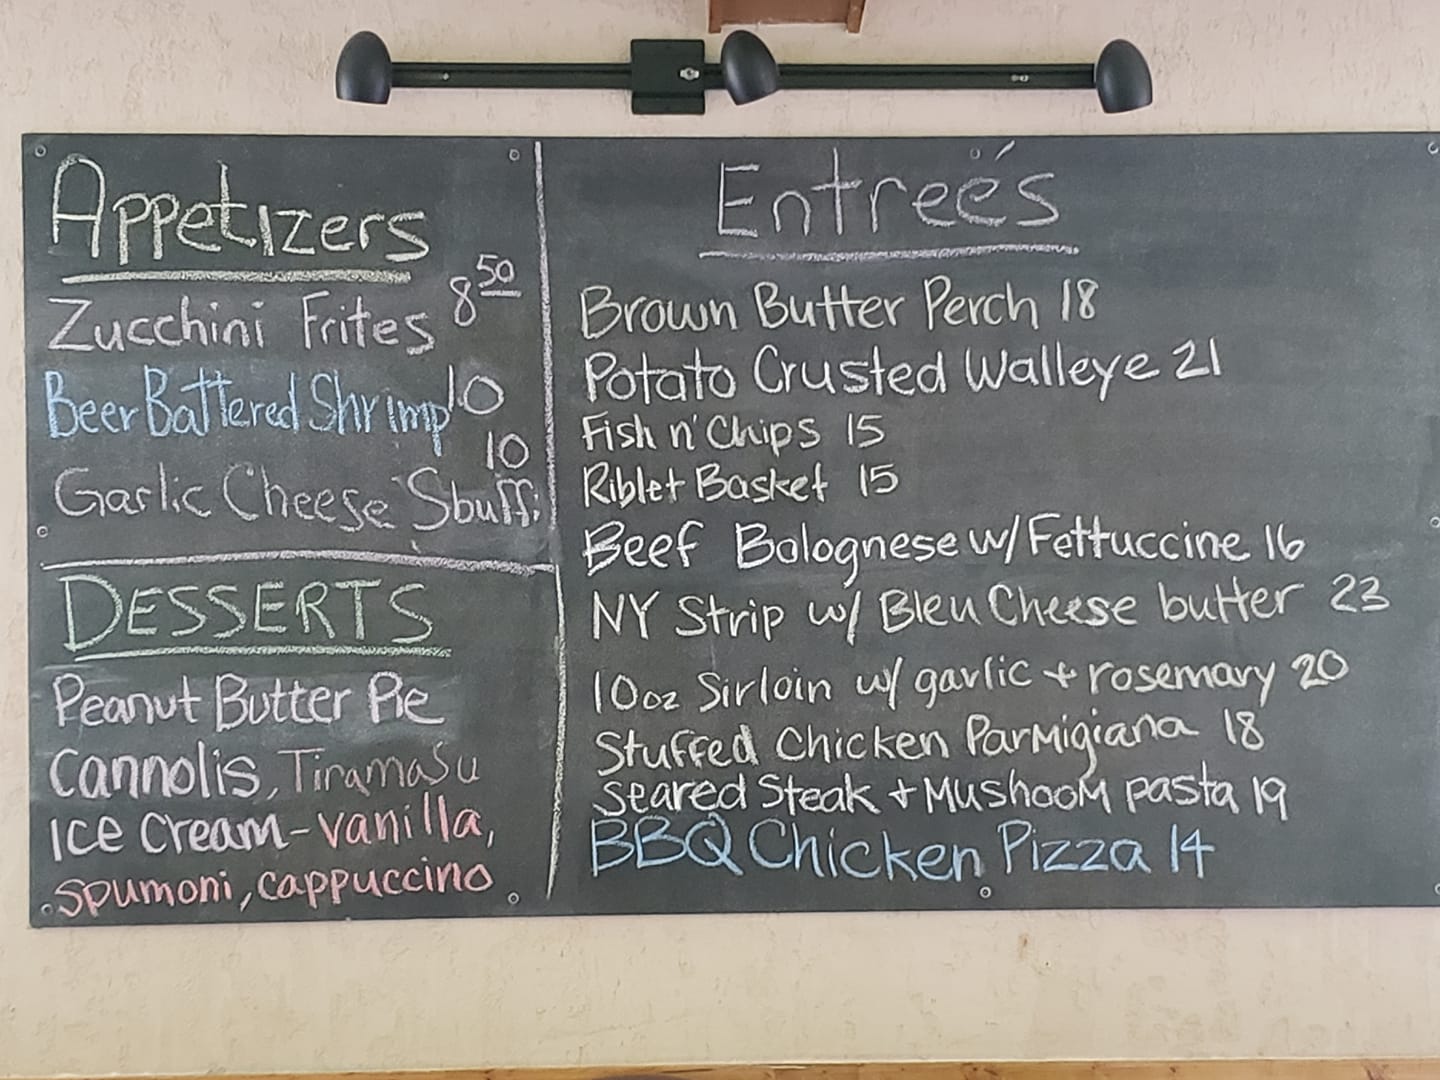 Appetizers
Zucchini Frites 8 50
Beer Battered Shrimp 10
10
Garlic Cheese
DESSERTS
Peanut Butter Pie
Cannolis, Tiramasu
Ice Cream - vanilla,
spumoni, cappuccino
Entreés
Brown Butter Perch 18
Potato Crusted Walleye 21
Fish n' Chips 15
Riblet Basket 15
Beef Bolognese w/ Fettuccine 16
NY Strip w/ Bleu Cheese butter 23
10oz Sirloin w/ garlic + rosemary 20
Stuffed Chicken Parmigiana 18
Seared Steak + Mushoom pasta 19
BBQ Chicken Pizza 14